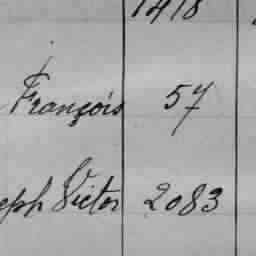 1418
François 57
eph Victor 2083